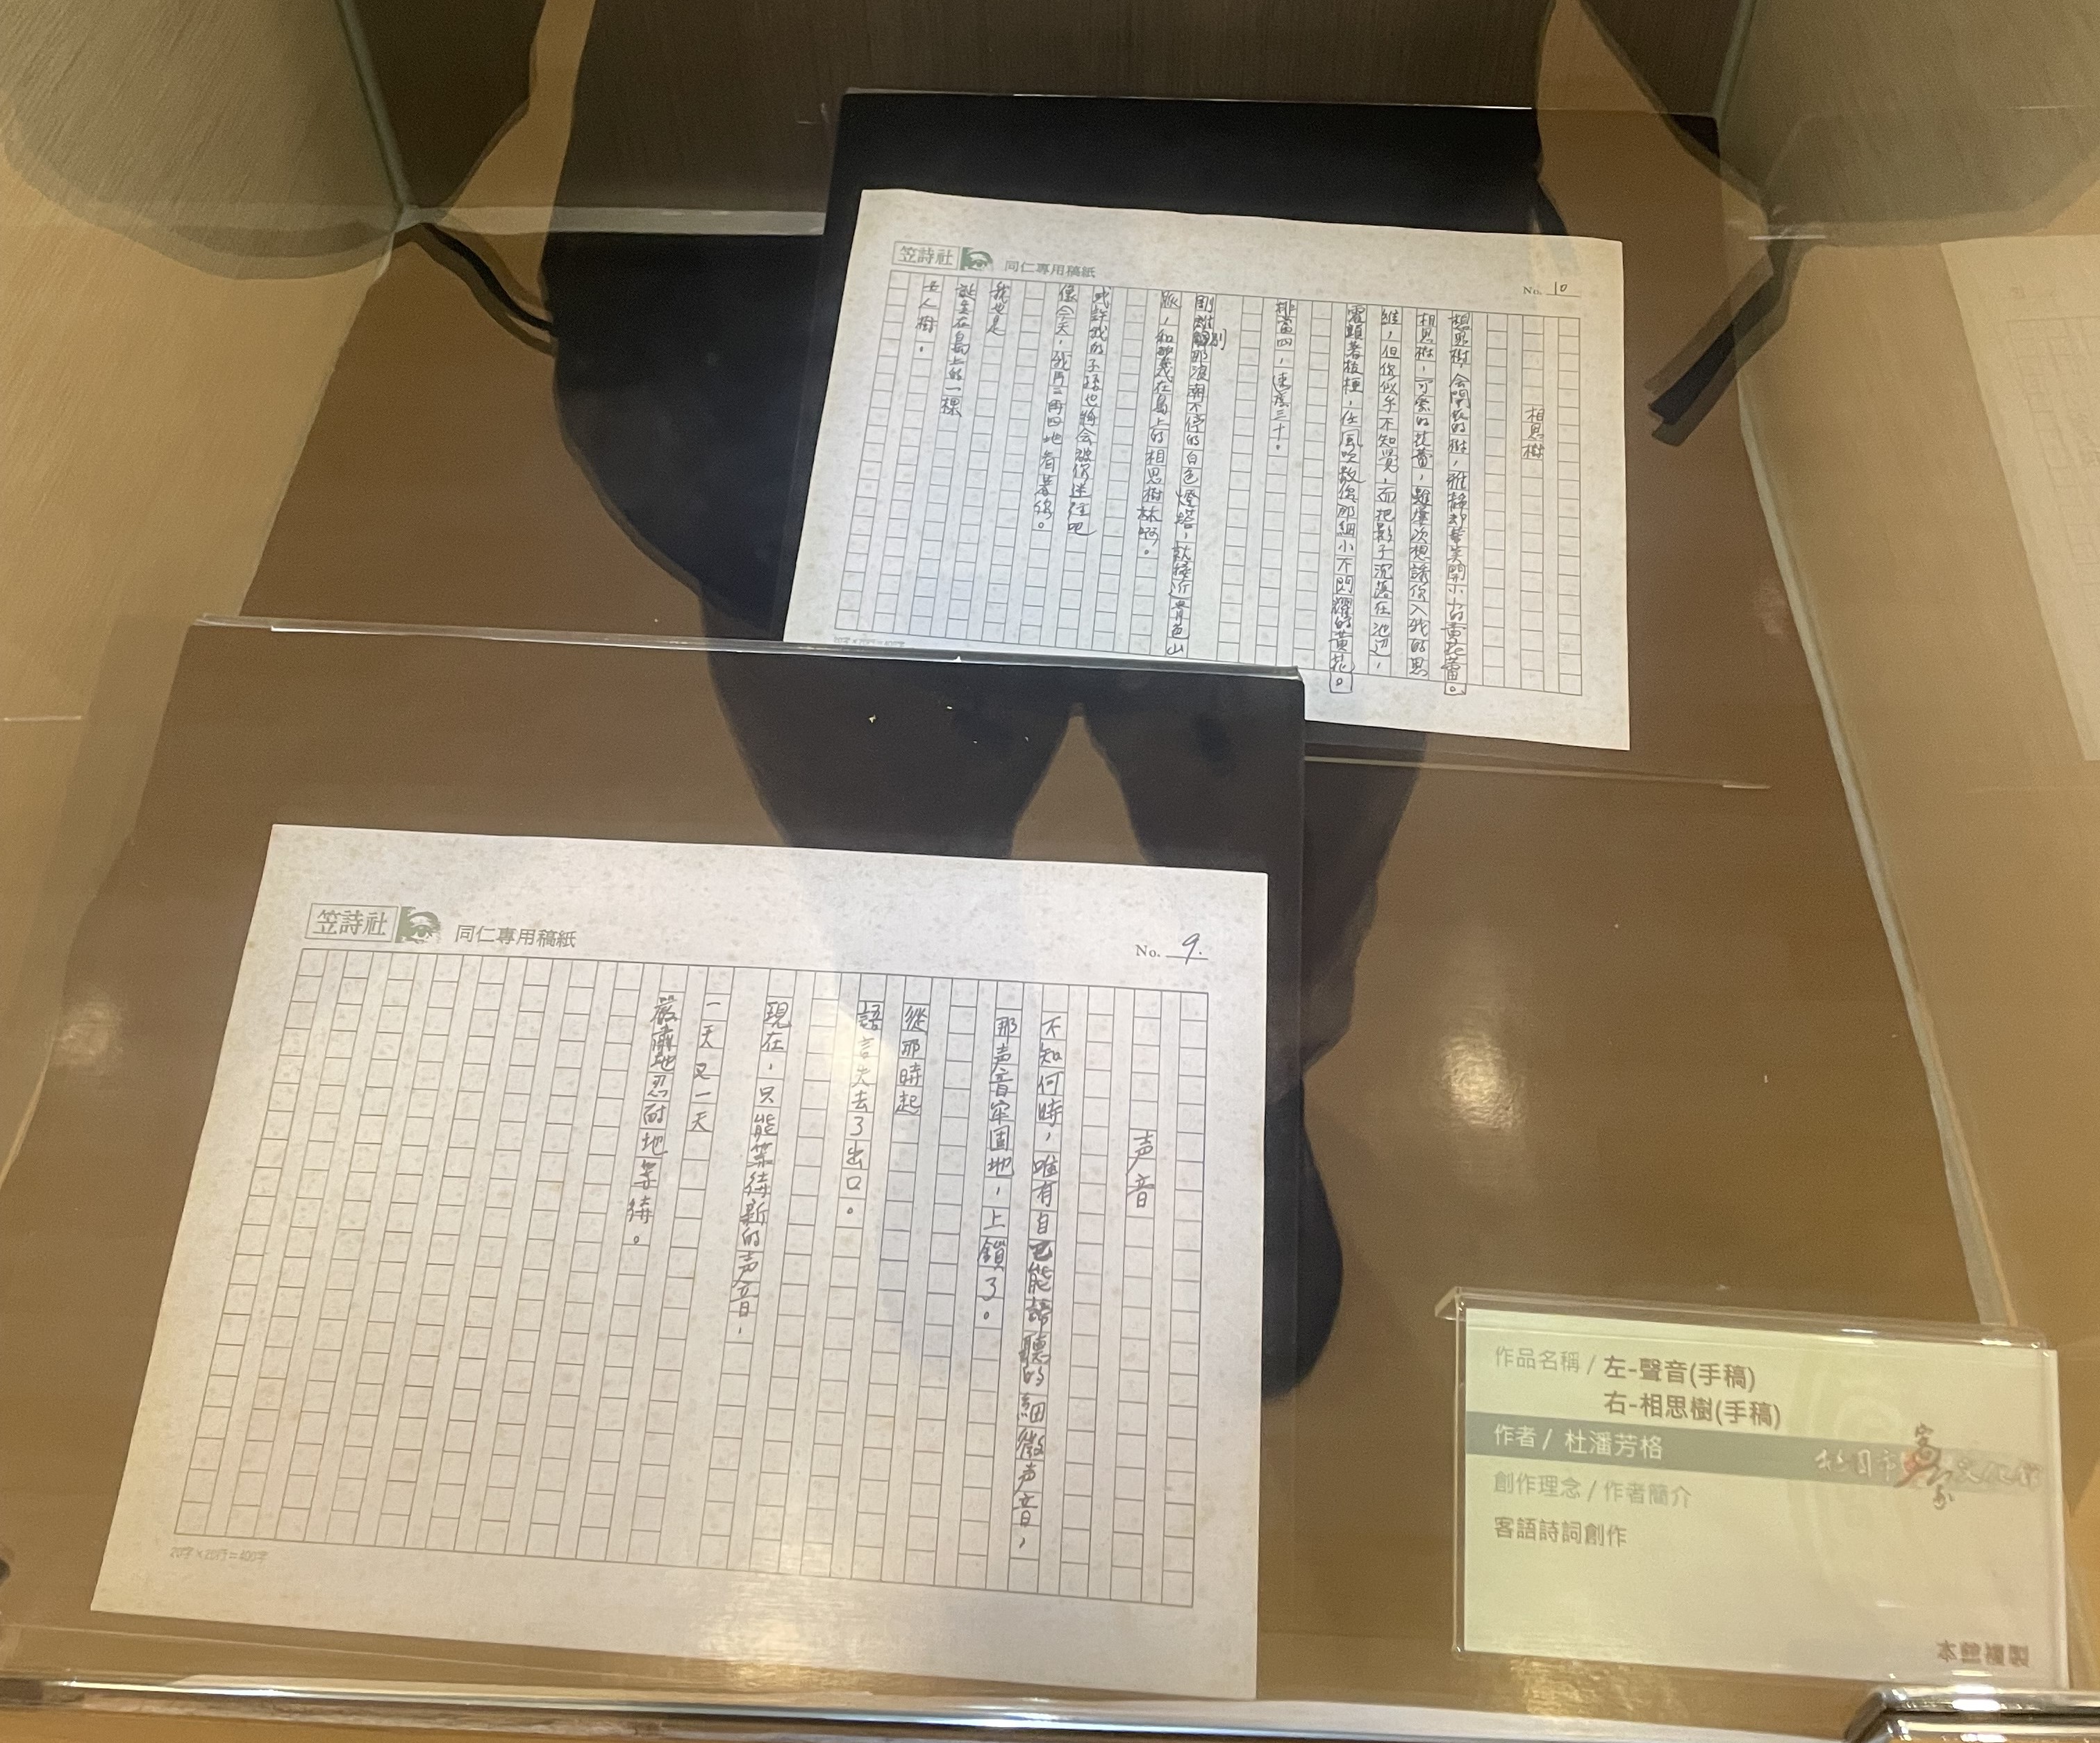 笠詩社
同仁專用稿紙
No. 10
相思樹
相思樹,会開花的樹,雅静却華美開小小的黄花蕾。
相思樹,可愛的花蕾,雖屢次想誘你入我的思
維,但你似乎不知覺,而把影子沉落在池边,
震顫著枝椏,任風吹散你那細小不閃耀的黄花。
排當四,速度三十。
剛離別那浪潮不停的白色燈塔,就接近青色山
脈,和那幾在島上的相思樹林啊。
或許我的子孫也將会被你迷住吧
像今天,我再三再四地看著你。
我也是
誕生在島上的一棵
女人樹。
笠詩社
同仁專用稿紙
No. 9.
声音
不知何時,唯有自己能諦聽的細微声音,
那声音牢固地,上鎖了。
從那時起
語言失去了出口。
現在,只能等待新的声音,
一天又一天
嚴肅地忍耐地等待。
20字×20行=400字
作品名稱 / 左-聲音(手稿)
右-相思樹(手稿)
作者 / 杜潘芳格
桃園市客家文化館
創作理念 / 作者簡介
客語詩詞創作
本館複製